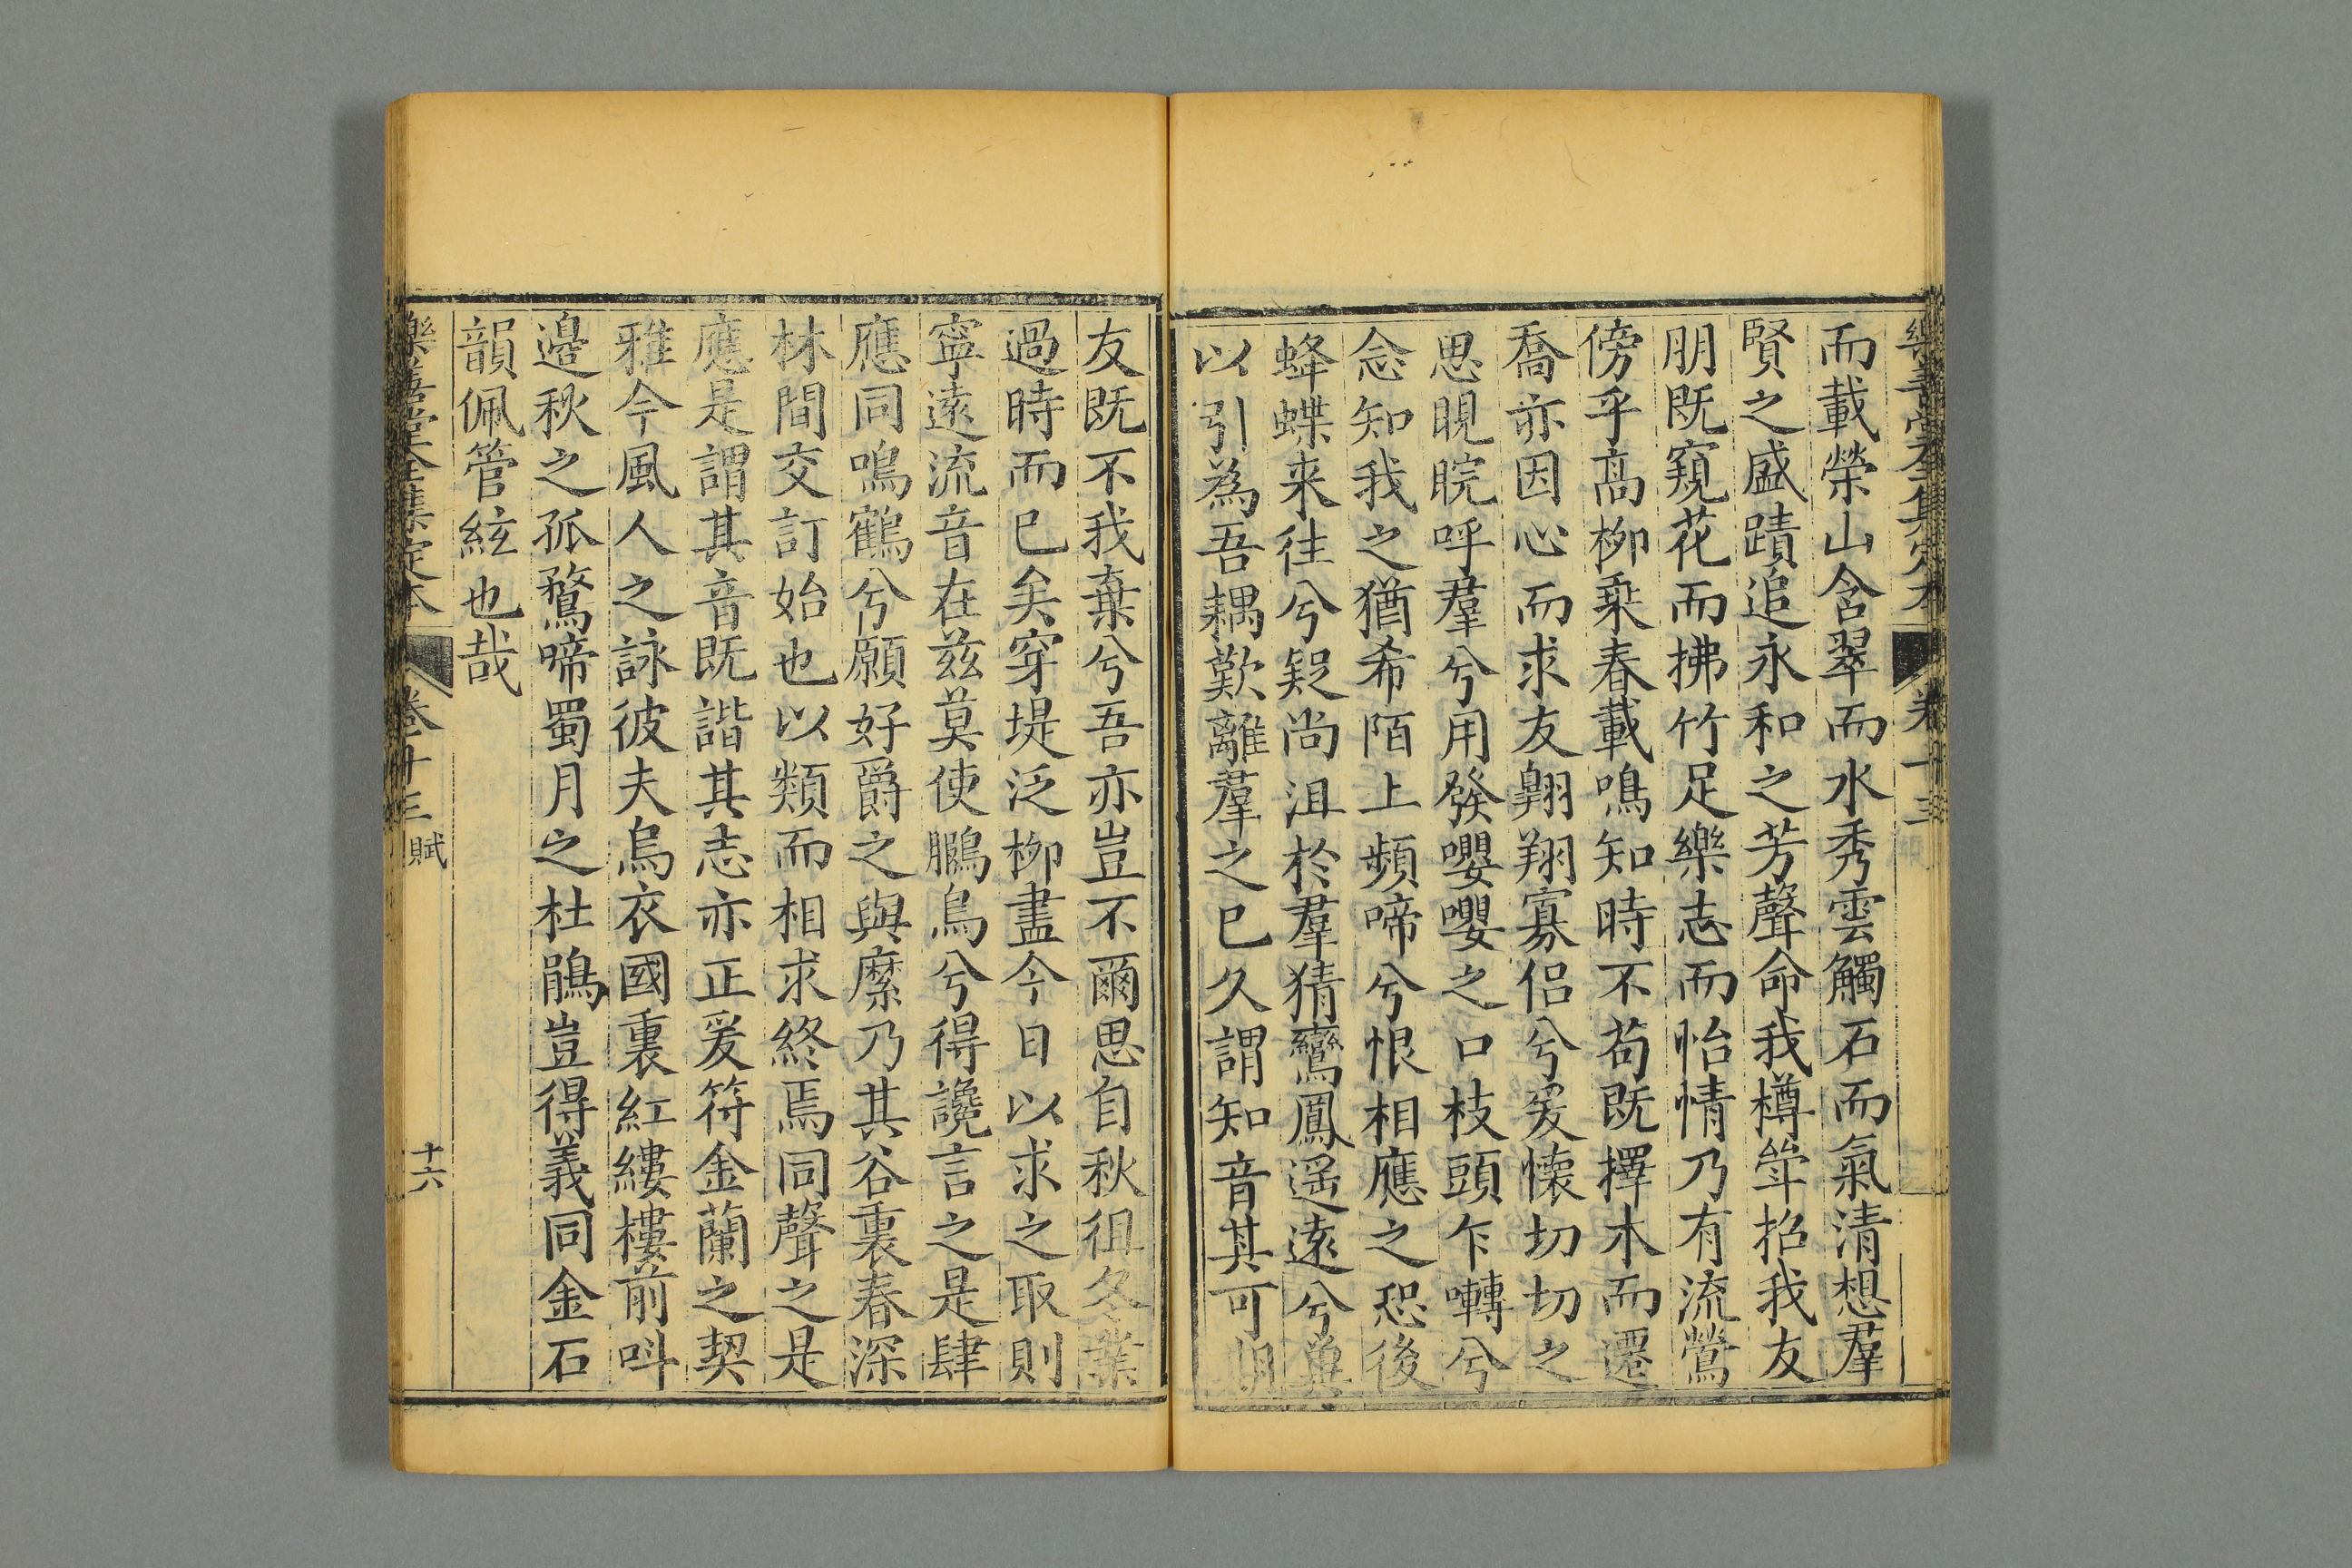 樂善堂全集定本 卷十三
而載榮山含翠而水秀雲觸石而氣清想羣
賢之盛蹟追永和之芳聲命我樽斚招我友
朋既窺花而拂竹足樂志而怡情乃有流鶯
傍乎高柳乘春載鳴知時不苟既擇木而遷
喬亦因心而求友翺翔寡侣兮爰懷切切之
思睍睆呼羣兮用發嚶嚶之口枝頭乍囀兮
念知我之猶希陌上頻啼兮恨相應之恐後
蜂蝶来往兮疑尚沮於羣猜鸞鳳遥遠兮奠
以引為吾耦歎離羣之已久謂知音其可期
友既不我棄兮吾亦豈不爾思自秋徂冬業
過時而已矣穿堤泛柳盡今日以求之取則
寧遠流音在兹莫使鵬鳥兮得讒言之是肆
應同鳴鶴兮願好爵之與縻乃其谷裏春深
林間交訂始也以類而相求終焉同聲之是
應是謂其音既諧其志亦正爰符金蘭之契
雅今風人之詠彼夫烏衣國裏紅縷樓前呌
邉秋之孤鶩啼蜀月之杜鵑豈得義同金石
韻佩管絃也哉
樂善堂全集定本 卷十三 賦 十六